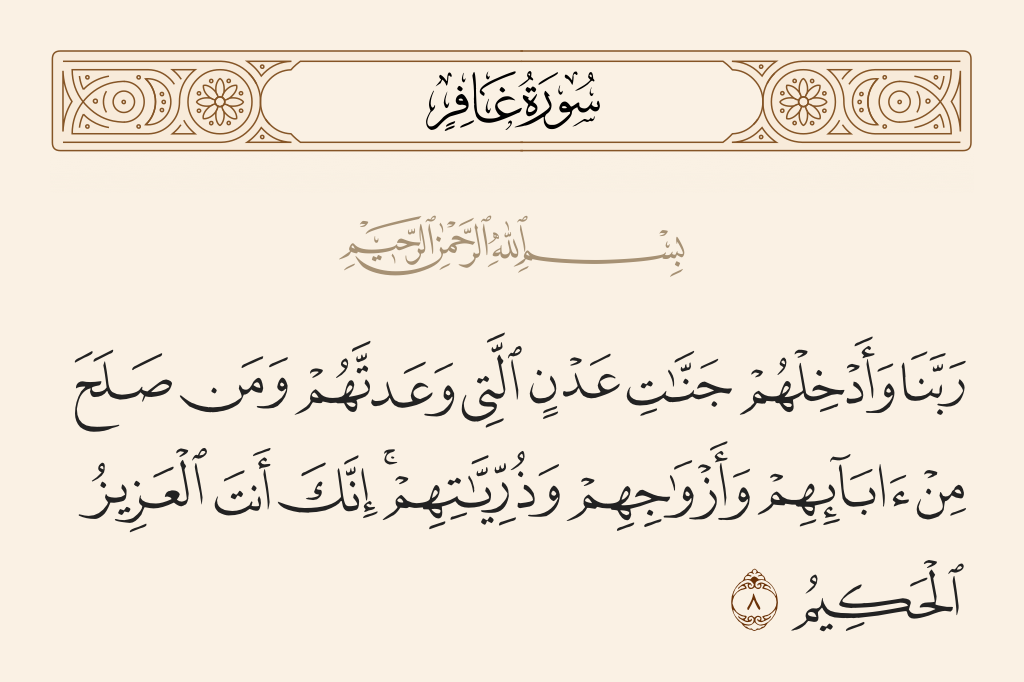 سُورَةُ غَافِرٍ
بِسْمِ ٱللَّهِ ٱلرَّحْمَٰنِ ٱلرَّحِيمِ
رَبَّنَا وَأَدْخِلْهُمْ جَنَّـٰتِ عَدْنٍ ٱلَّتِى وَعَدتَّهُمْ وَمَن صَلَحَ
مِنْ ءَابَآئِهِمْ وَأَزْوَٰجِهِمْ وَذُرِّيَّـٰتِهِمْ ۚ إِنَّكَ أَنتَ ٱلْعَزِيزُ
ٱلْحَكِيمُ ٨